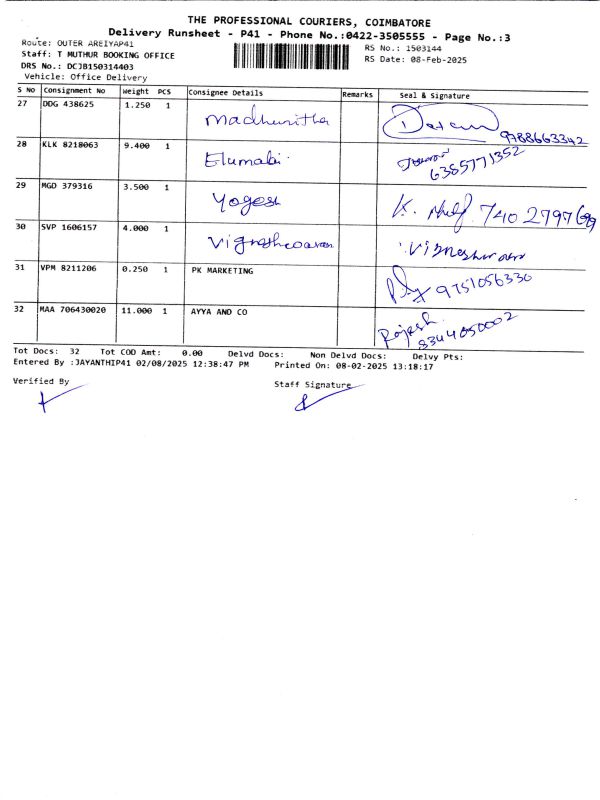 THE PROFESSIONAL COURIERS, COIMBATORE
Delivery Runsheet - P41 - Phone No.:0422-3505555 - Page No.:3
Route: OUTER AREIYAP41
RS No.: 1503144
Staff: T MUTHUR BOOKING OFFICE
RS Date: 08-Feb-2025
DRS No.: DCJB150314403
Vehicle: Office Delivery
S No Consignment No Weight PCS Consignee Details Remarks Seal & Signature
27 DDG 438625 1.250 1 Madhumitha 9788663342
28 KLK 8218063 9.400 1 Elumalai 6385771352
29 MGD 379316 3.500 1 Yogesh K. 7402797699
30 SVP 1606157 4.000 1 Vigneshwaran Vigneshwaran
31 VPM 8211206 0.250 1 PK MARKETING 9751056330
32 MAA 706430020 11.000 1 AYYA AND CO Rajesh 8344050002
Tot Docs: 32 Tot COD Amt: 0.00 Delvd Docs: Non Delvd Docs: Delvy Pts:
Entered By :JAYANTHIP41 02/08/2025 12:38:47 PM Printed On: 08-02-2025 13:18:17
Verified By Staff Signature